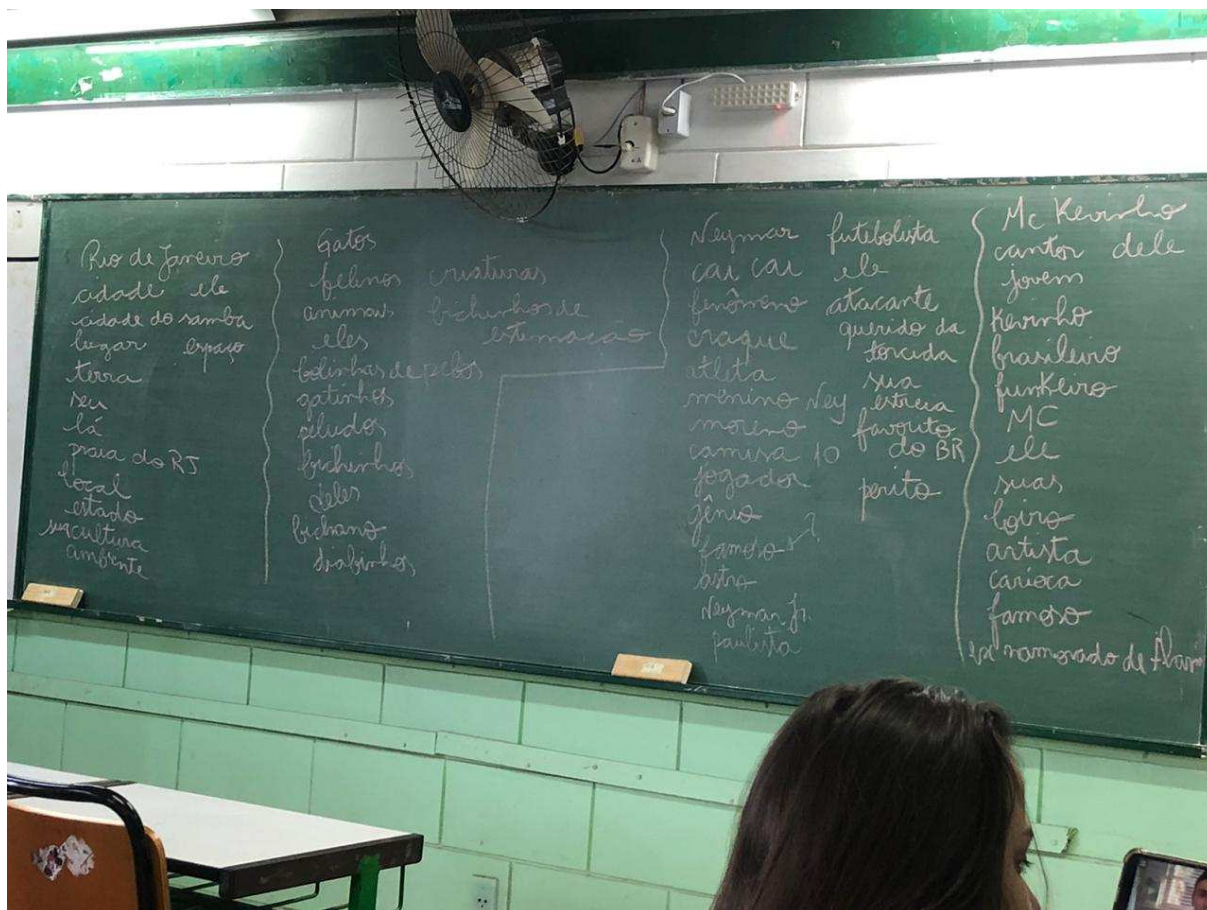 Rio de Janeiro
cidade ele
cidade do samba
lugar espaço
terra
seu
lá
praia do RJ
local
estado
sua cultura
ambiente
Gatos
felinos criaturas
animais bichinhos de
eles estimação
bolinhas de pelos
gatinhos
peludos
bichinhos
deles
bichano
diabinhos
Neymar futebolista
cai cai ele
fenômeno atacante
craque querido da
torcida
atleta sua
menino Ney estrela
moreno favorito
camisa 10 do BR
jogador perito
gênio
famoso
astro
Neymar Jr.
paulista
Mc Kevinho
cantor dele
jovem
Kevinho
brasileiro
funkeiro
MC
ele
suas
loiro
artista
carioca
famoso
ex namorado de